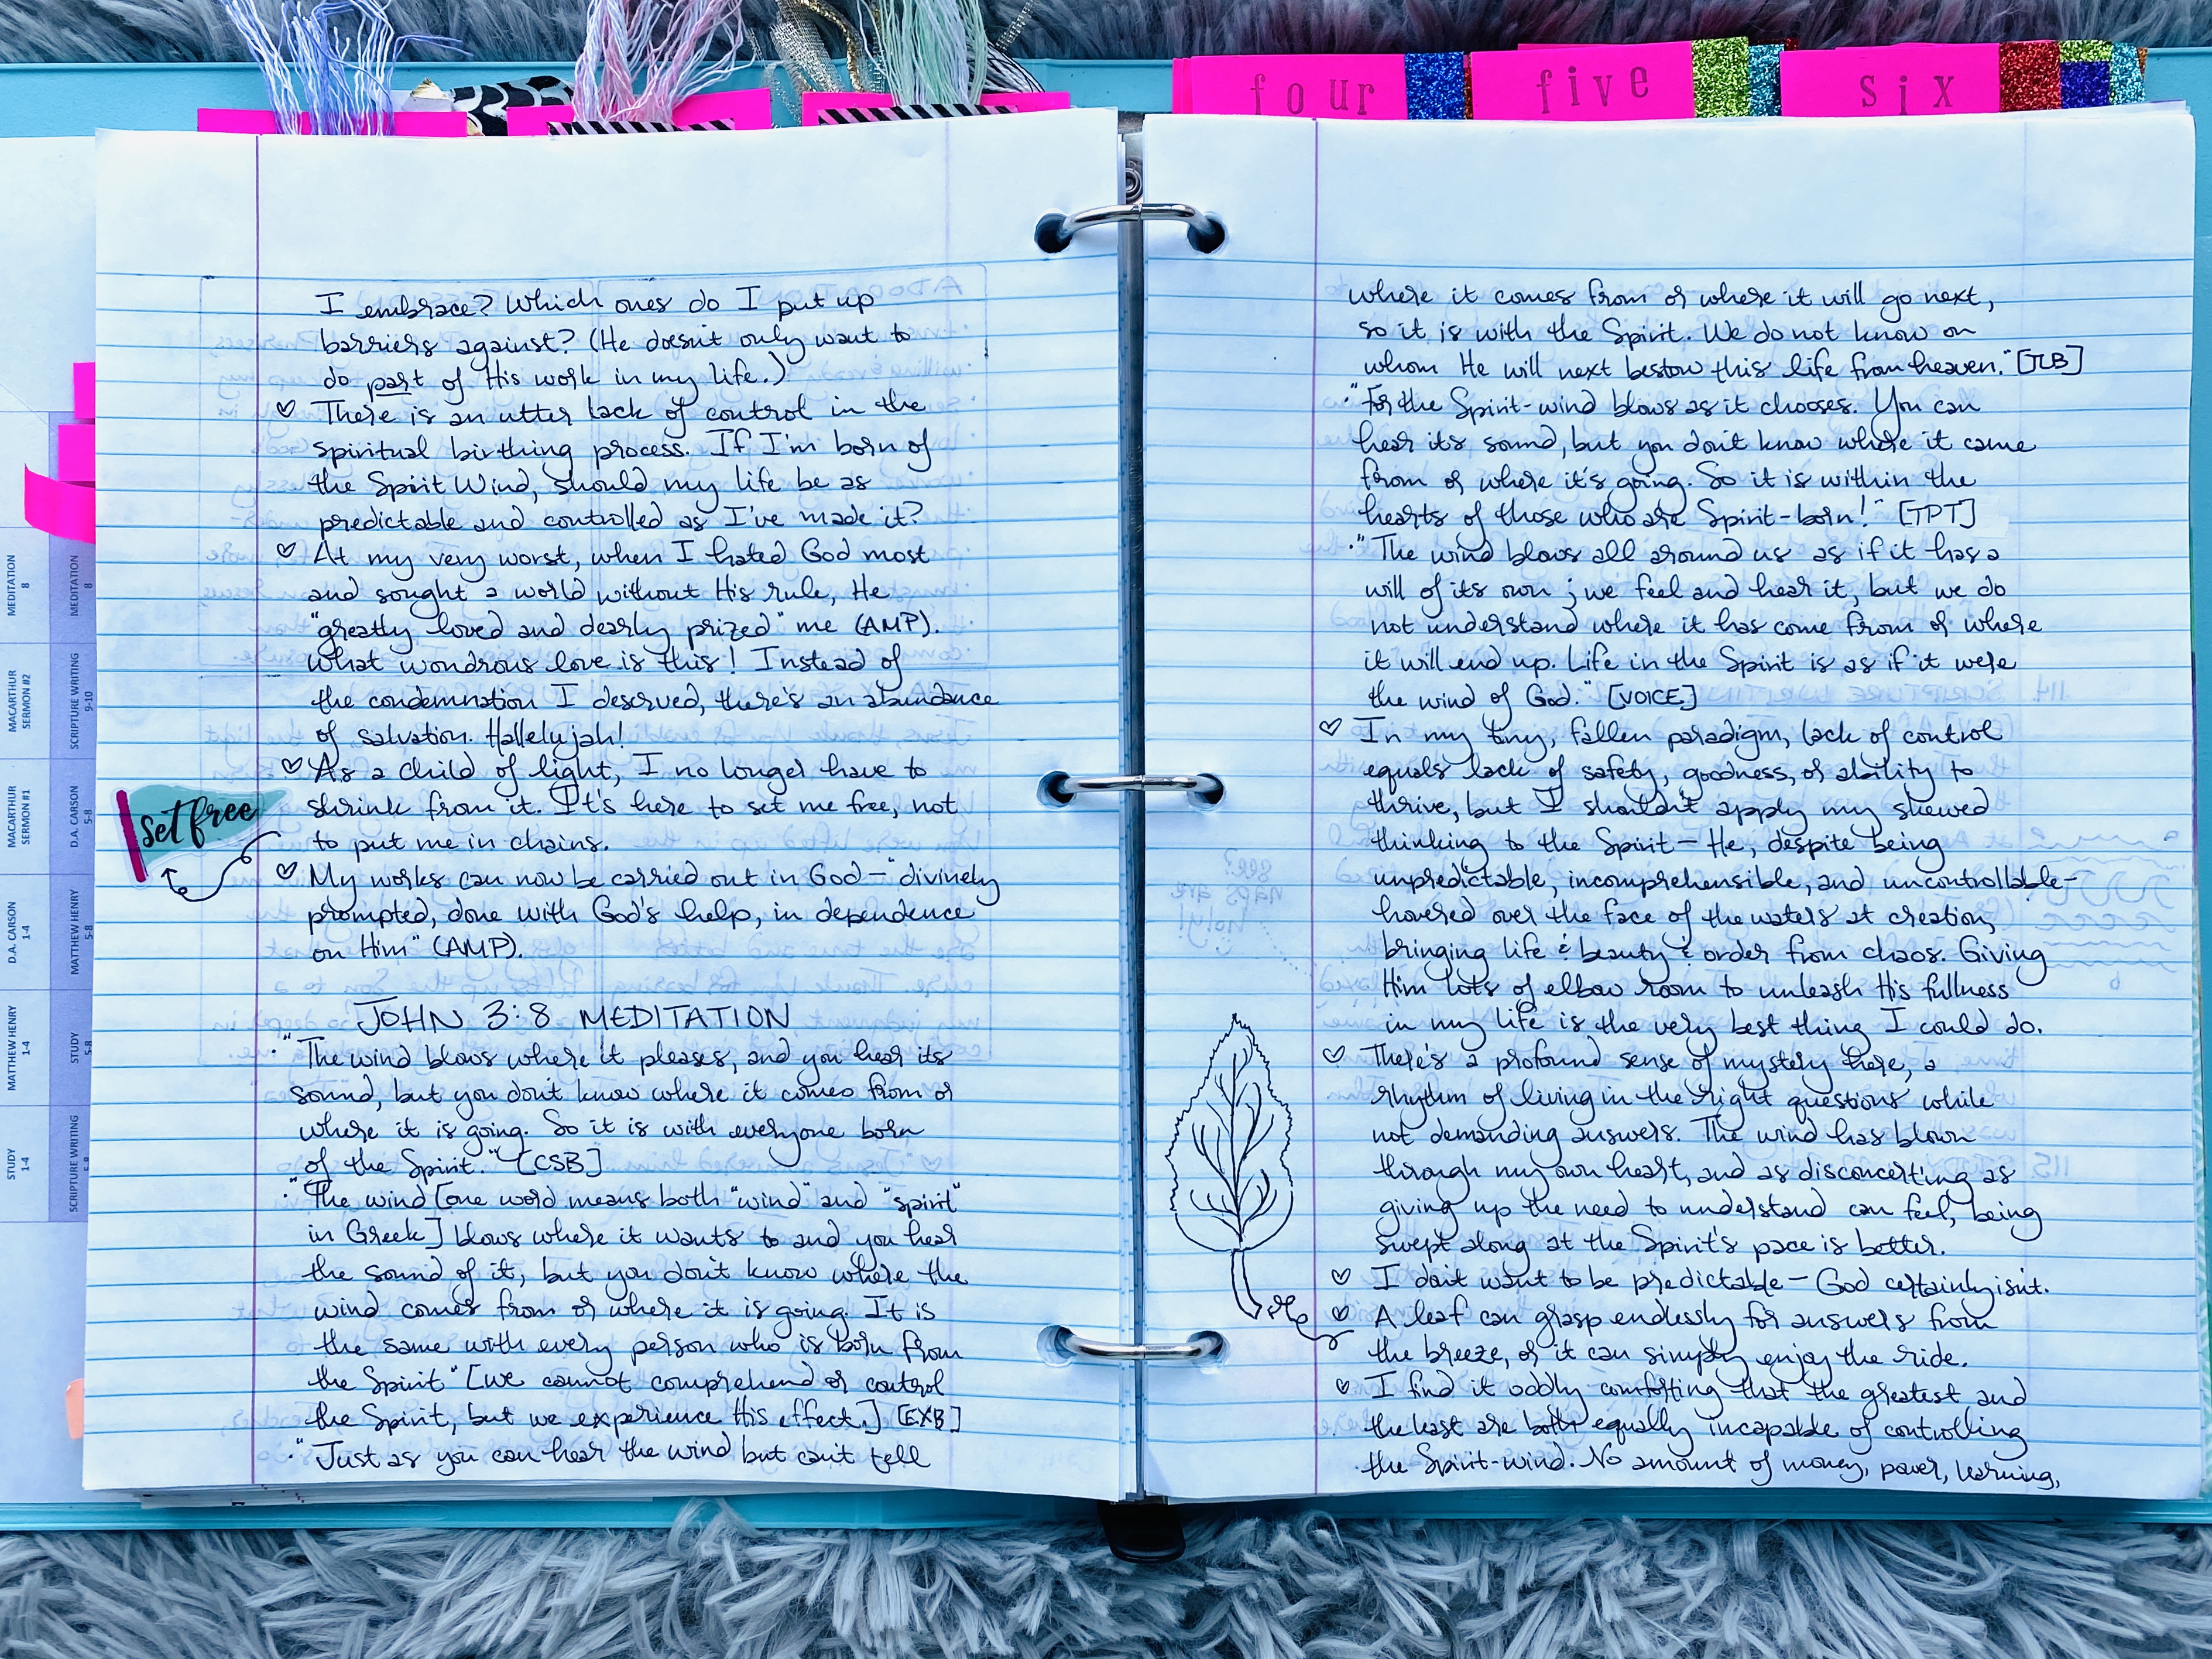 four
five
six
I embrace? Which ones do I put up
barriers against? (He doesn't only want to
do part of His work in my life.)
There is an utter lack of control in the
spiritual birthing process. If I'm born of
the Spirit Wind, should my life be as
predictable and controlled as I've made it?
At my very worst, when I hated God most
and sought a world without His rule, He
"greatly loved and dearly prized" me (AMP).
What wondrous love is this! Instead of
the condemnation I deserved, there's an abundance
of salvation. Hallelujah!
As a child of light, I no longer have to
shrink from it. It's here to set me free, not
to put me in chains.
set free
My works can now be carried out in God - "divinely
prompted, done with God's help, in dependence
on Him" (AMP).
JOHN 3:8 MEDITATION
· "The wind blows where it pleases, and you hear its
sound, but you don't know where it comes from or
where it is going. So it is with everyone born
of the Spirit." [CSB]
· "The wind [one word means both "wind" and "spirit"
in Greek] blows where it wants to and you hear
the sound of it, but you don't know where the
wind comes from or where it is going. It is
the same with every person who is born from
the Spirit" [we cannot comprehend or control
the Spirit, but we experience His effect.] [EXB]
· "Just as you can hear the wind but can't tell
MEDITATION
8
MACARTHUR
SERMON #2
MACARTHUR
SERMON #1
D.A. CARSON
1-4
MATTHEW HENRY
1-4
STUDY
1-4
MEDITATION
8
SCRIPTURE WRITING
9-10
D.A. CARSON
5-8
MATTHEW HENRY
5-8
STUDY
5-8
SCRIPTURE WRITING
where it comes from or where it will go next,
so it is with the Spirit. We do not know on
whom He will next bestow this life from heaven." [TLB]
· "For the Spirit-wind blows as it chooses. You can
hear its sound, but you don't know where it came
from or where it's going. So it is within the
hearts of those who are Spirit-born!" [TPT]
· "The wind blows all around us as if it has a
will of its own; we feel and hear it, but we do
not understand where it has come from or where
it will end up. Life in the Spirit is as if it were
the wind of God." [VOICE]
In my tiny, fallen paradigm, lack of control
equals lack of safety, goodness, or ability to
thrive, but I shouldn't apply my skewed
thinking to the Spirit - He, despite being
unpredictable, incomprehensible, and uncontrollable -
hovered over the face of the waters at creation,
bringing life & beauty & order from chaos. Giving
Him lots of elbow room to unleash His fullness
in my life is the very best thing I could do.
There's a profound sense of mystery here, a
rhythm of living in the right questions while
not demanding answers. The wind has blown
through my own heart, and as disconcerting as
giving up the need to understand can feel, being
swept along at the Spirit's pace is better.
I don't want to be predictable - God certainly isn't.
A leaf can grasp endlessly for answers from
the breeze, or it can simply enjoy the ride.
I find it oddly comforting that the greatest and
the least are both equally incapable of controlling
the Spirit-wind. No amount of money, power, learning,